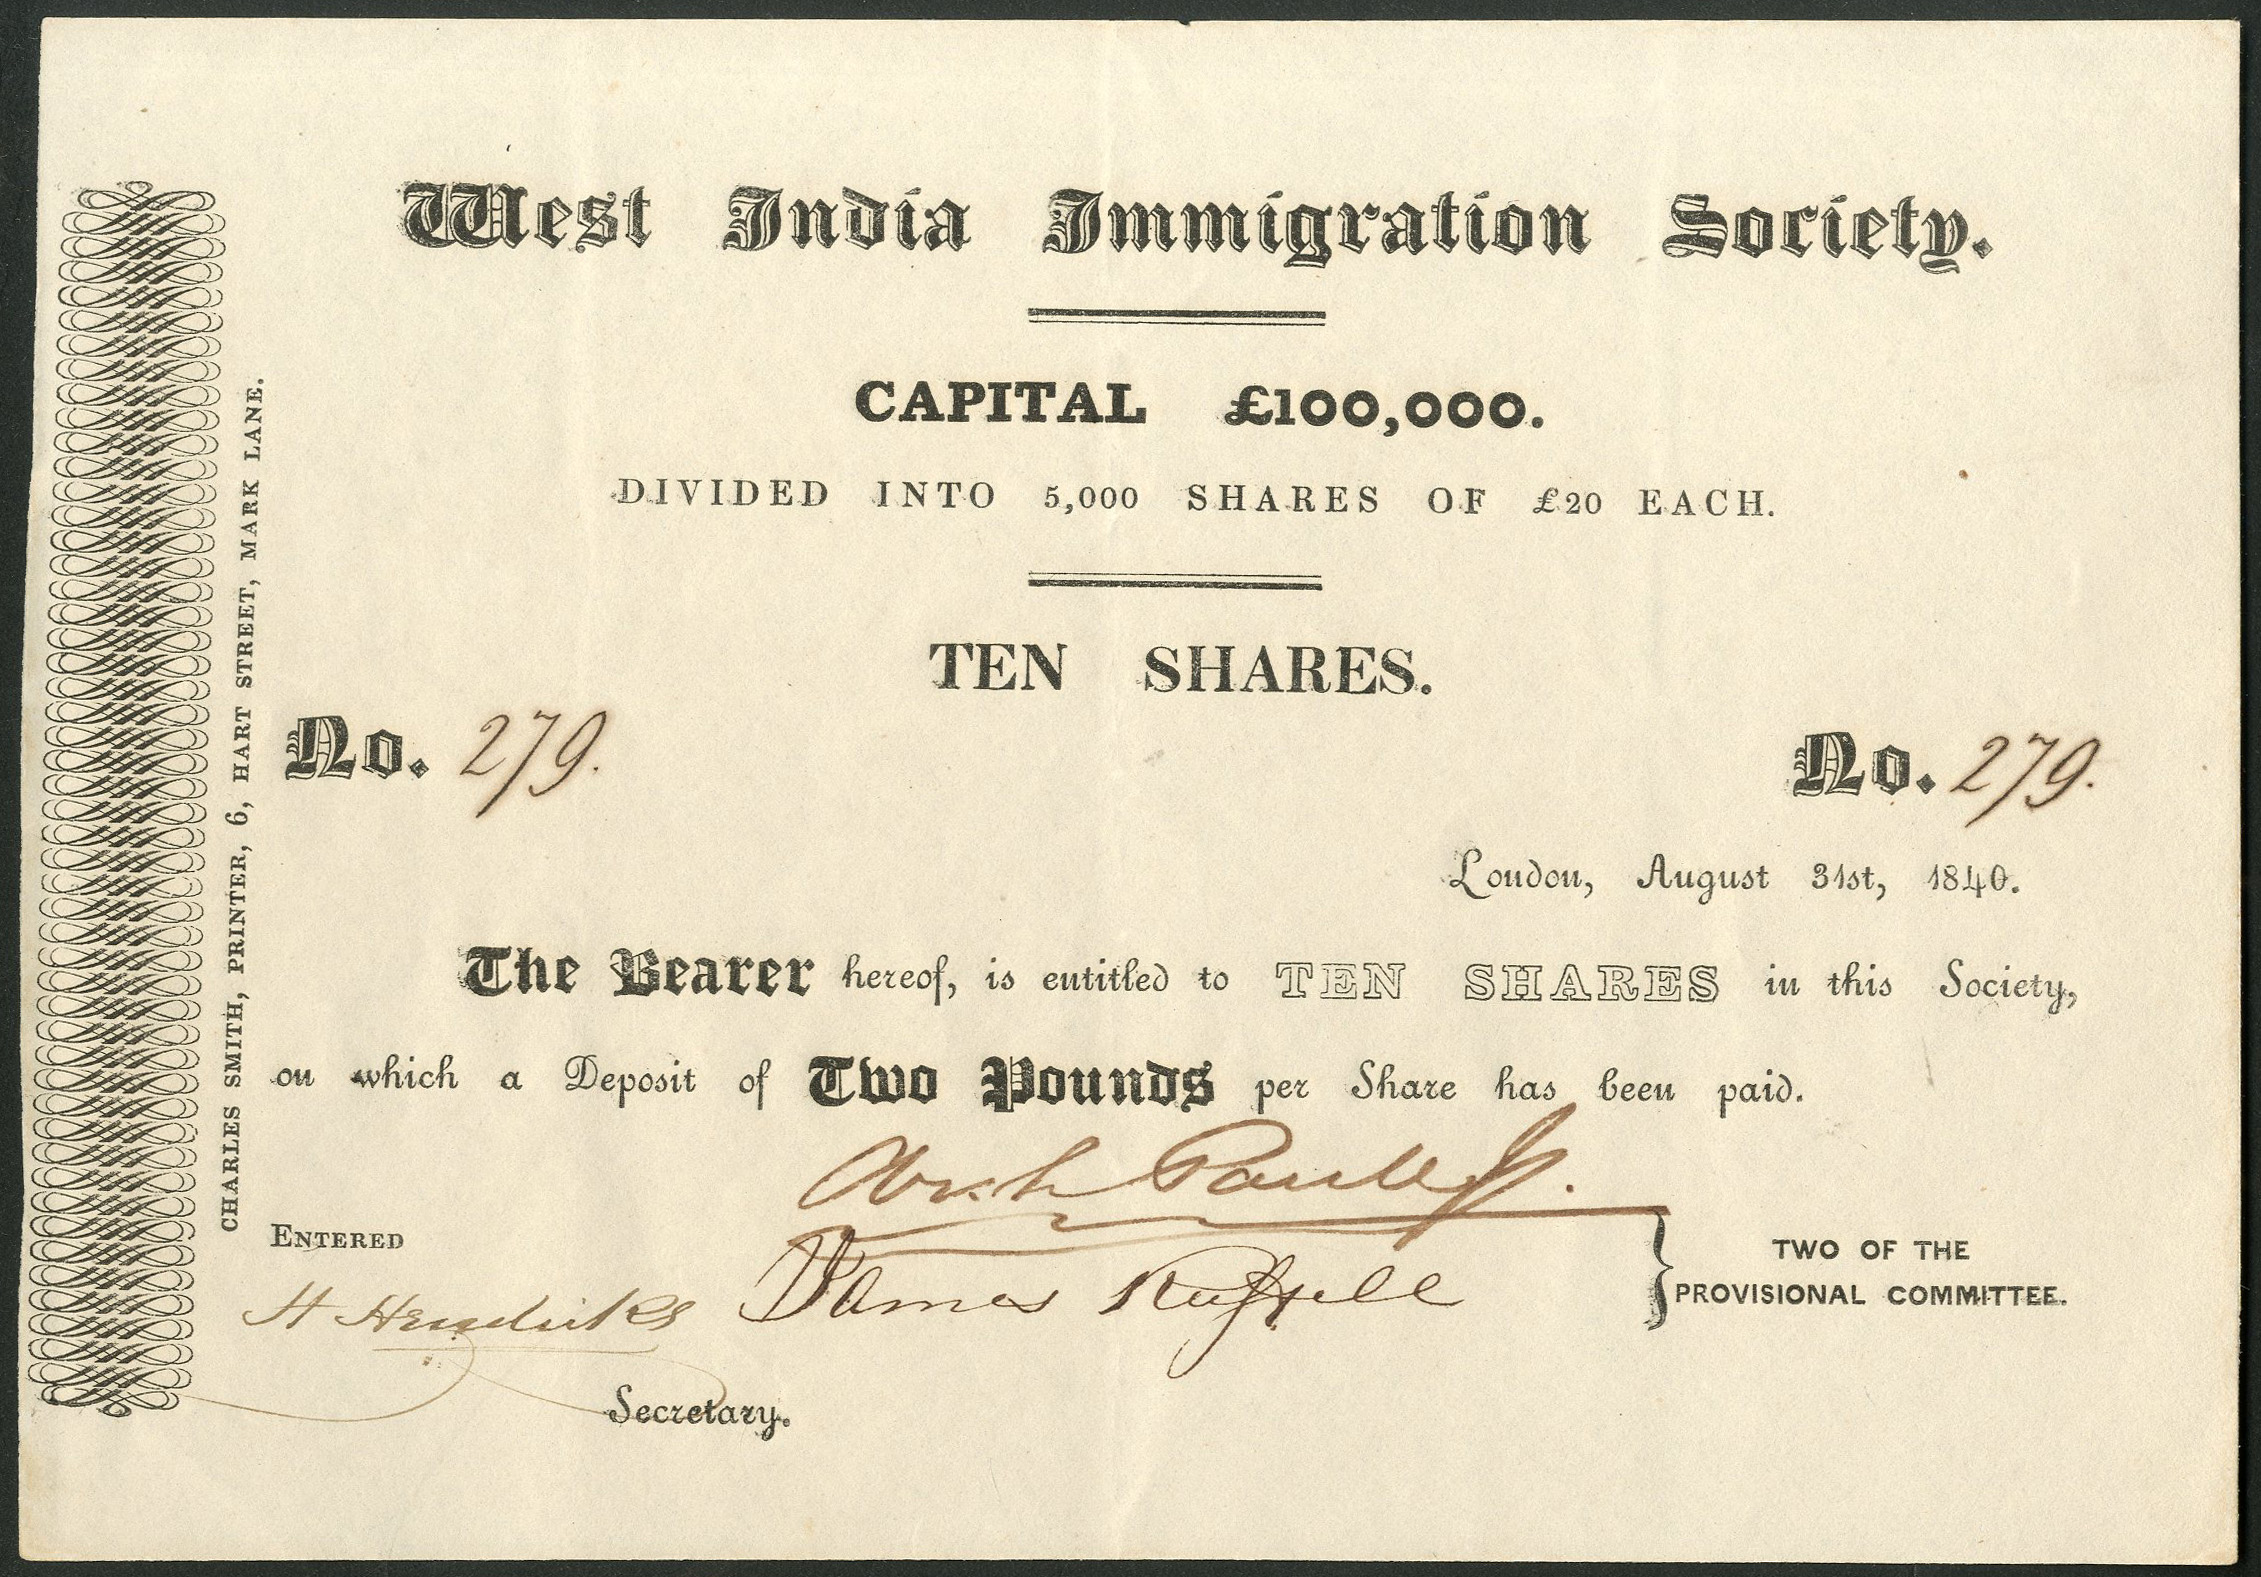 West India Immigration Society.
CAPITAL £100,000.
DIVIDED INTO 5,000 SHARES OF £20 EACH.
TEN SHARES.
No. 279.
No. 279.
London, August 31st, 1840.
The Bearer hereof, is entitled to TEN SHARES in this Society,
on which a Deposit of Two Pounds per Share has been paid.
James Russell
TWO OF THE
PROVISIONAL COMMITTEE.
ENTERED
H Hendricks
Secretary.
CHARLES SMITH, PRINTER, 6, HART STREET, MARK LANE.